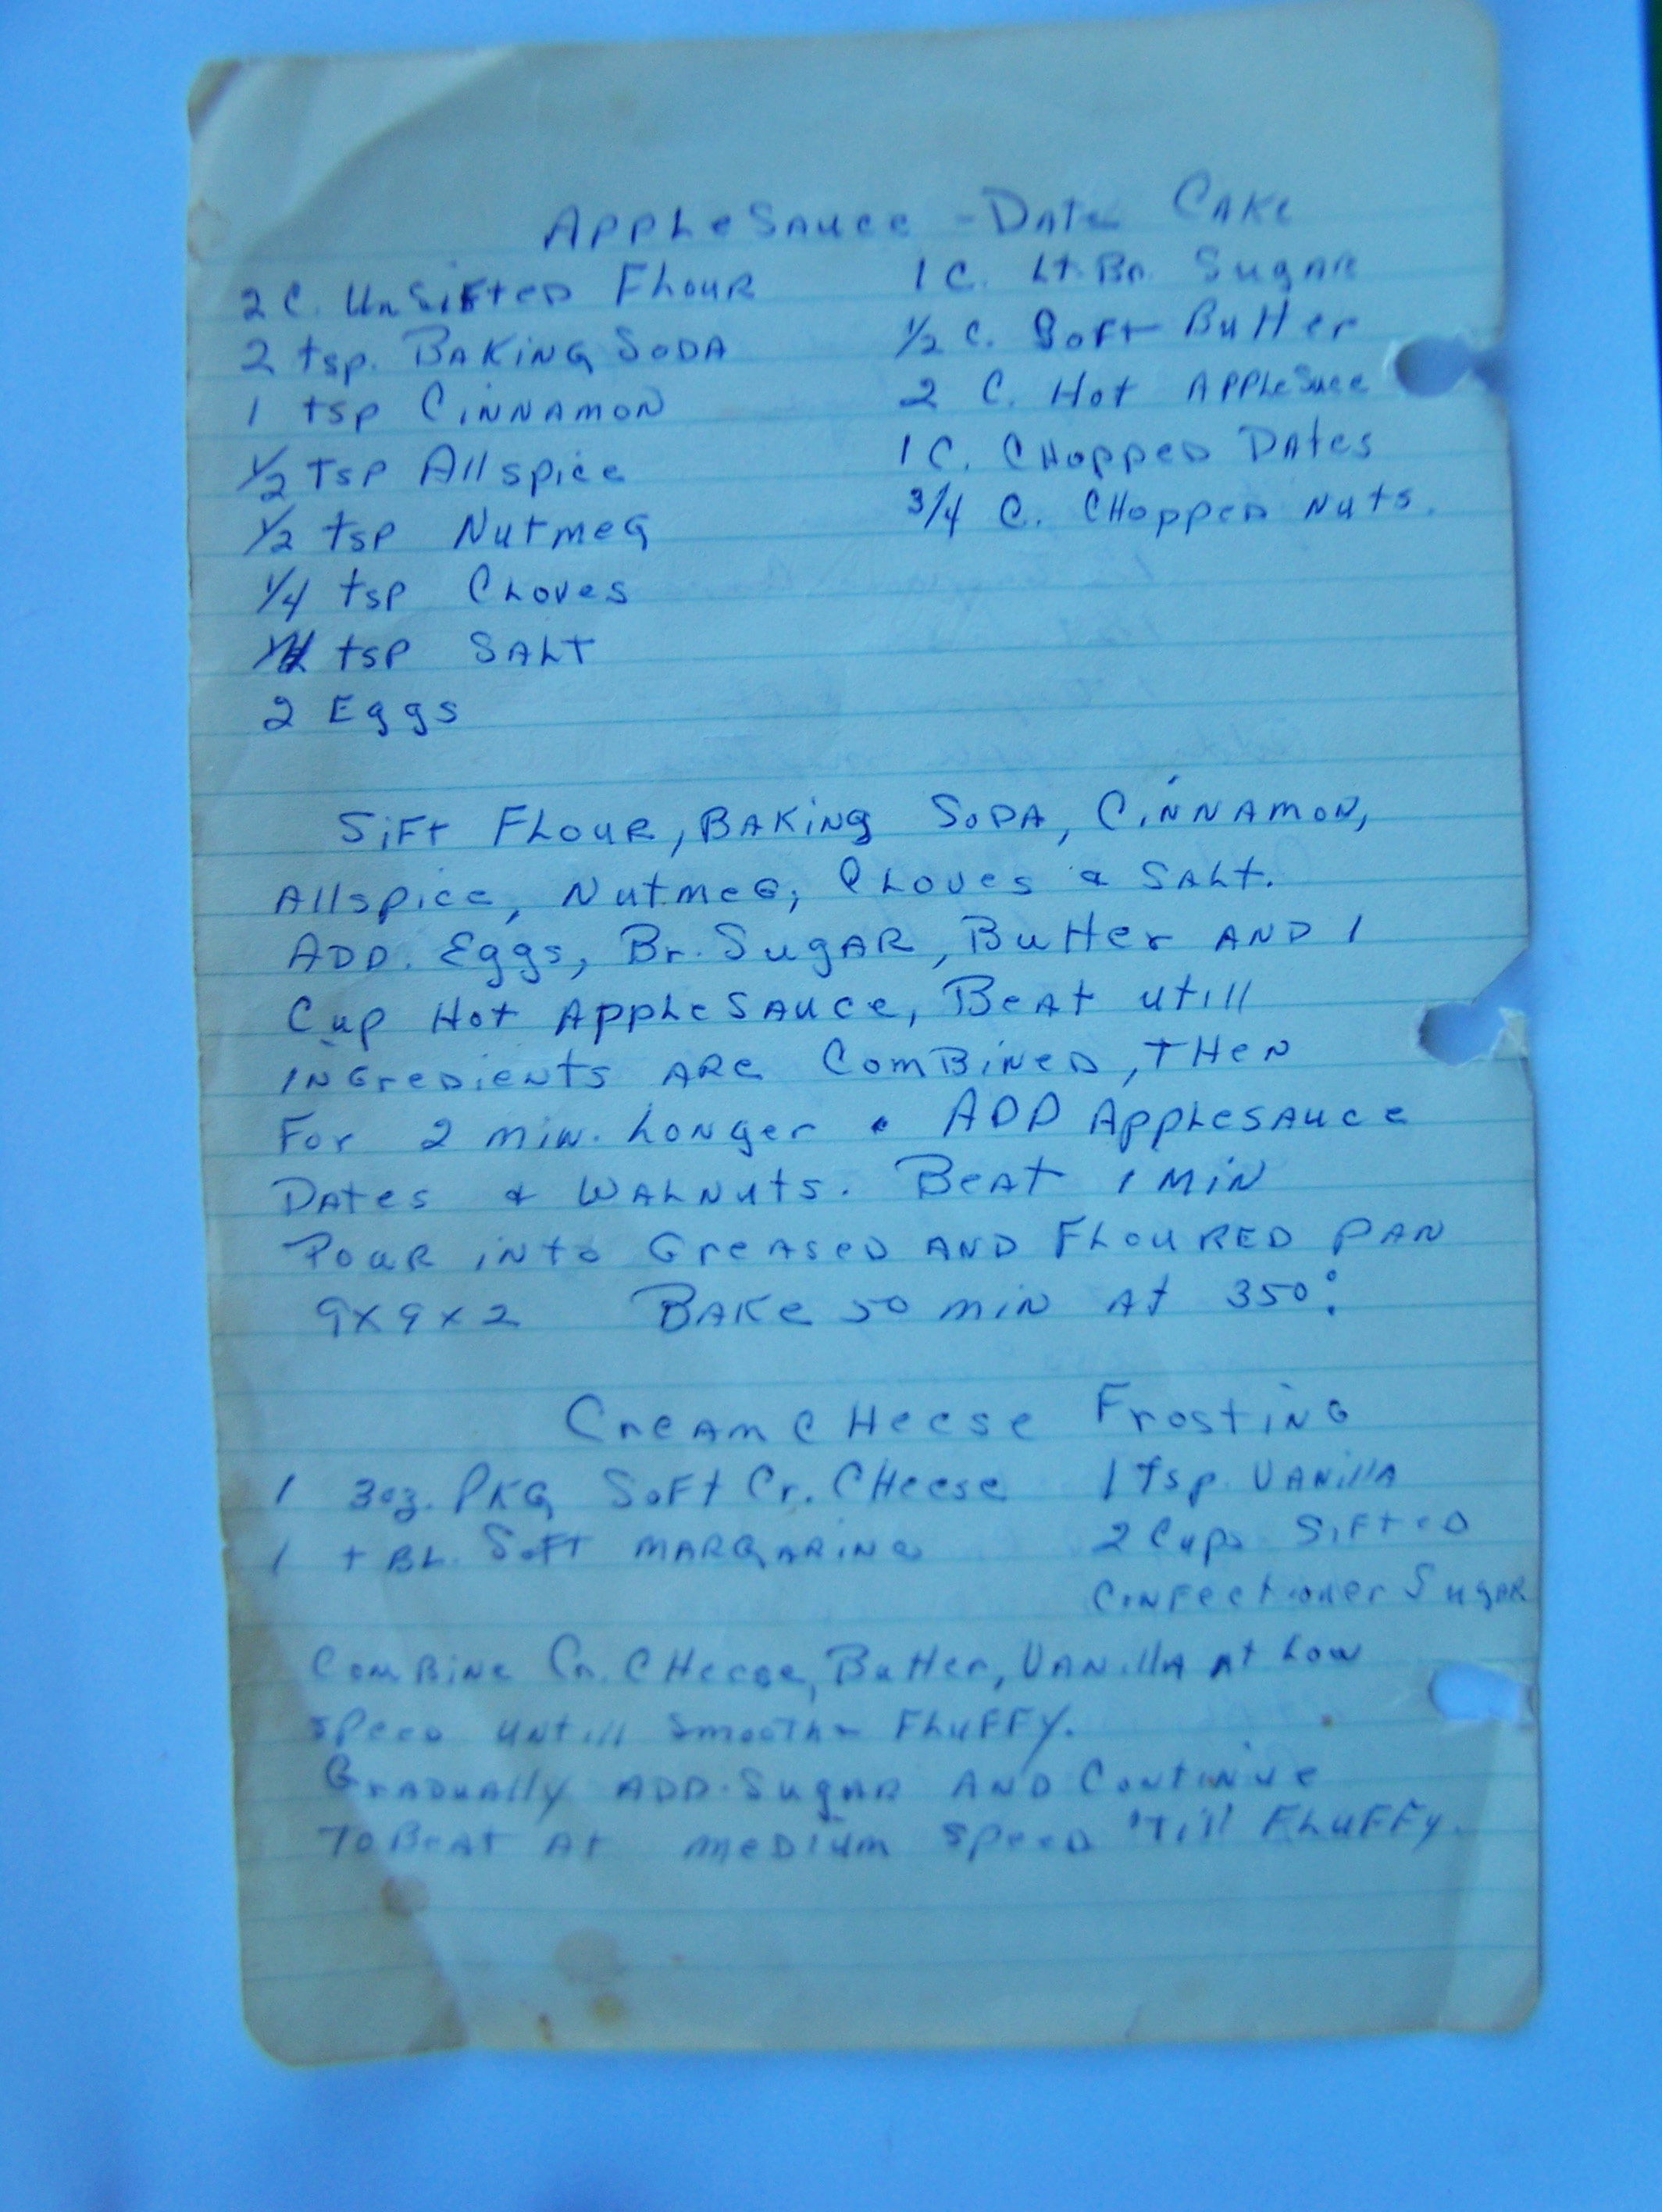 AppleSauce - Date Cake
2 C. UnSifted Flour
2 tsp. Baking Soda
1 tsp Cinnamon
1/2 Tsp Allspice
1/2 tsp Nutmeg
1/4 tsp Cloves
tsp Salt
2 Eggs
1 C. Lt. Br. Sugar
1/2 C. Soft Butter
2 C. Hot AppleSauce
1 C. Chopped Dates
3/4 C. Chopped Nuts.
Sift Flour, Baking Soda, Cinnamon,
Allspice, Nutmeg, Cloves & Salt.
Add. Eggs, Br. Sugar, Butter and 1
Cup Hot AppleSauce, Beat utill
ingredients are Combined, then
For 2 min. Longer. Add Applesauce
Dates & Walnuts. Beat 1 min
Pour into Greased and Floured pan
9x9x2 Bake 50 min at 350°.
Cream Cheese Frosting
1 3oz. Pkg Soft Cr. Cheese
1 tBL. Soft margarine
1 Tsp. Vanilla
2 Cups Sifted
Confectioner Sugar
Combine Cr. Cheese, Butter, Vanilla at Low
speed untill smooth & Fluffy.
Gradually add. Sugar and Continue
To Beat at medium speed 'till Fluffy.